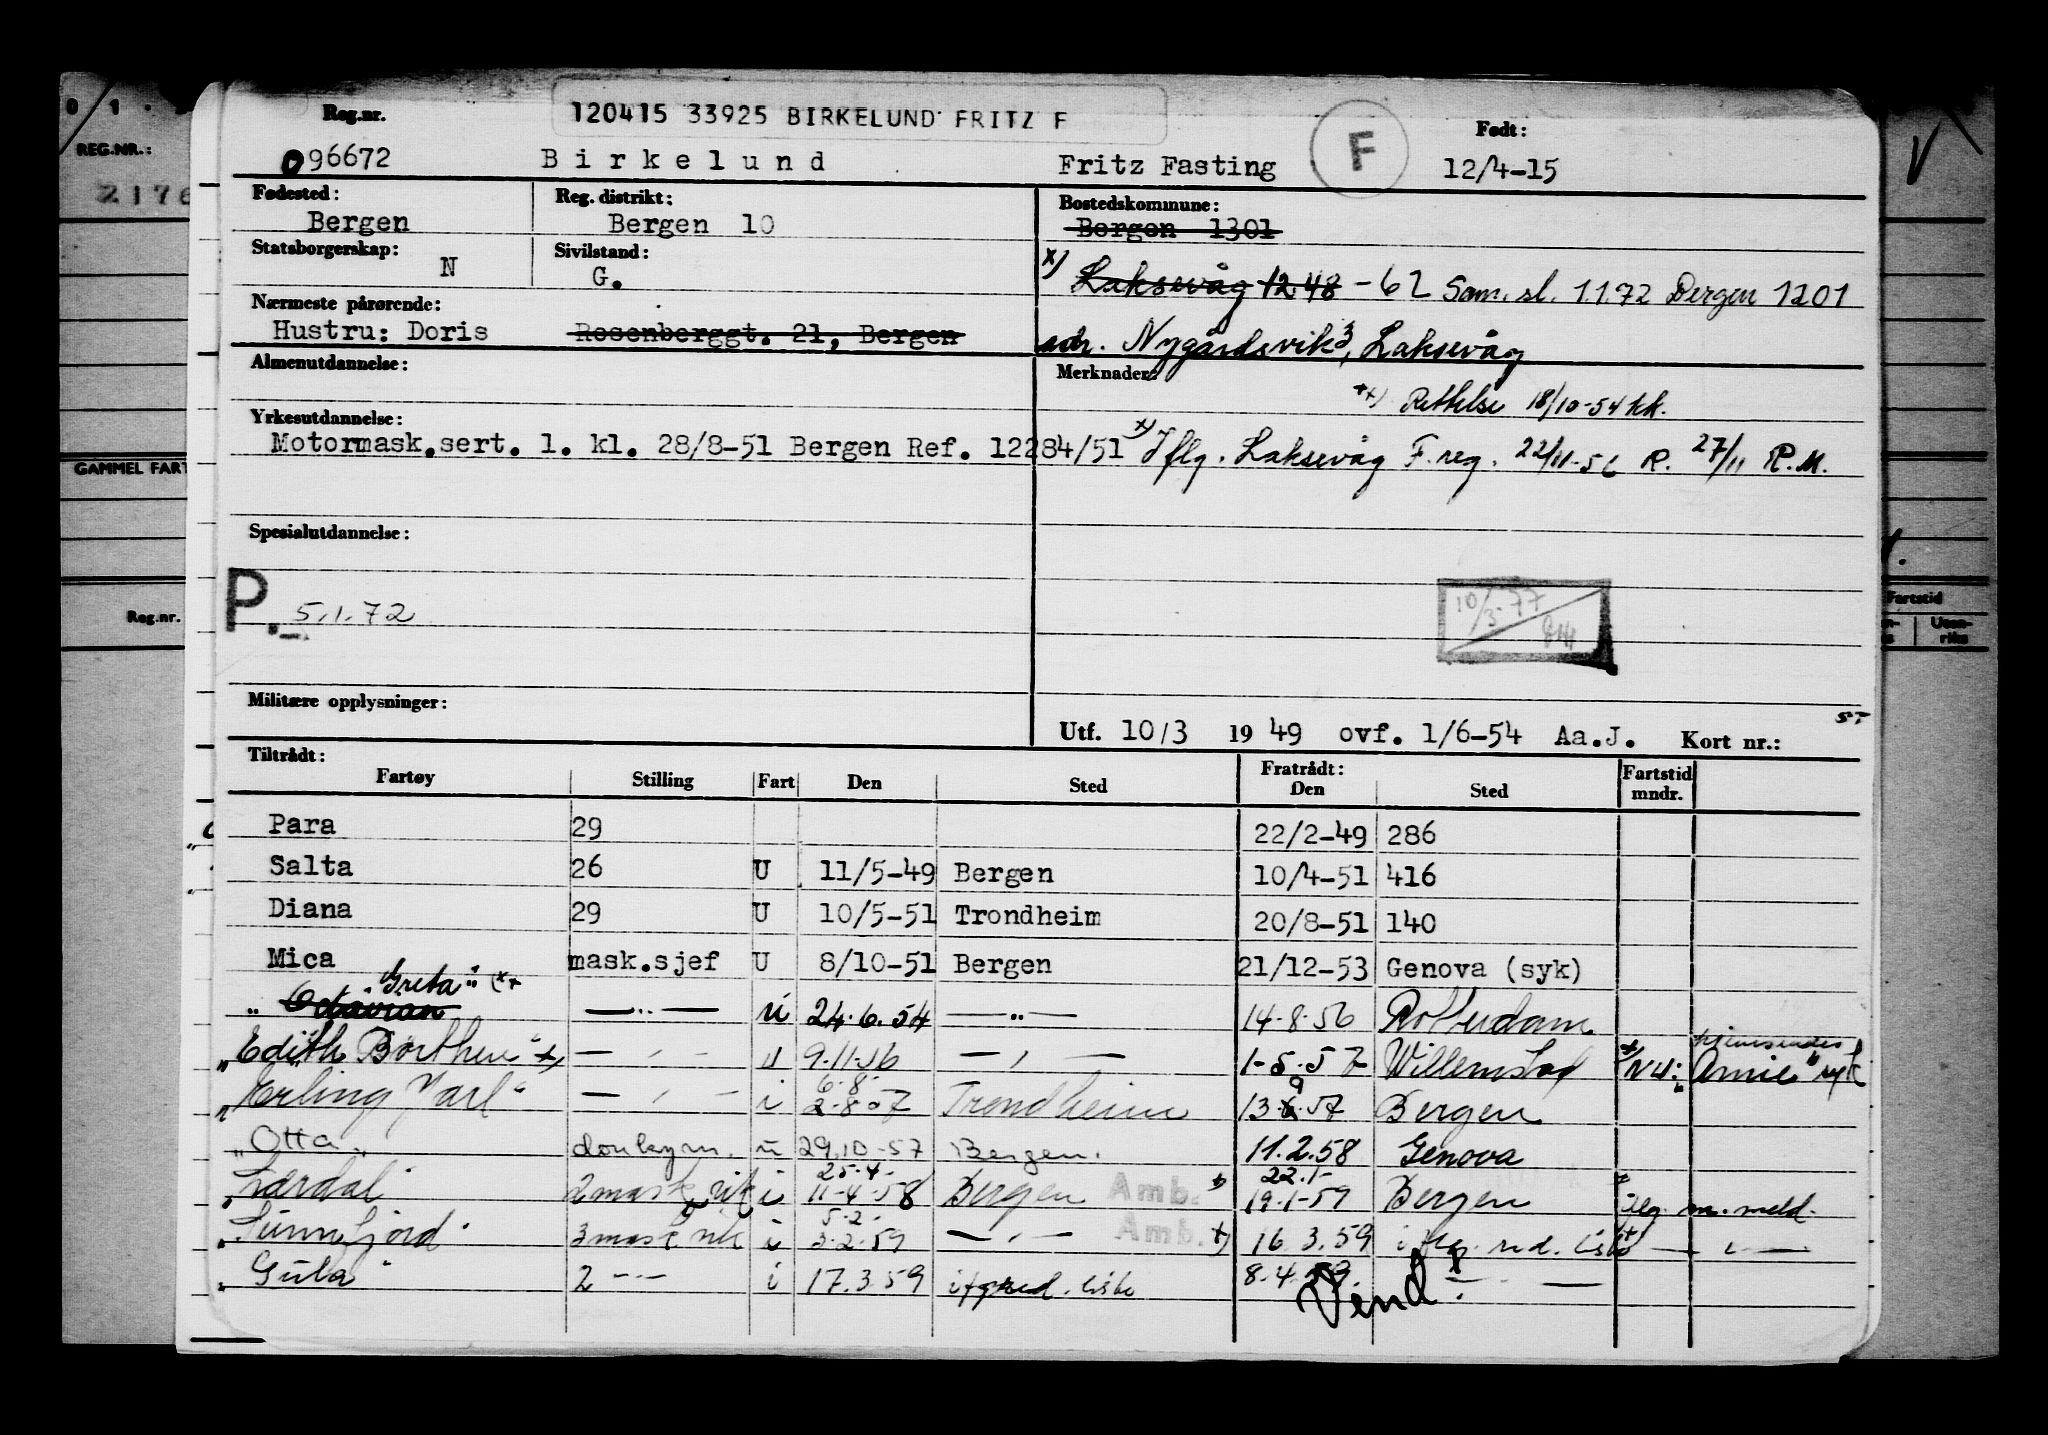 120415 33925 BIRKELUND FRITZ F
Reg.nr.
096672 Birkelund Fritz Fasting F
Født:
12/4-15
Fødested:
Bergen
Reg. distrikt:
Bergen 10
Bostedskommune:
Bergen 1301
Statsborgerskap:
N
Sivilstand:
G.
x) Laksevåg 1248 - 62 Sam. sl. 1.1.72 Bergen 1201
Nærmeste pårørende:
Hustru: Doris Rosenberggt. 21, Bergen
adr. Nygårdsvik 3, Laksevåg
Almenutdannelse:
Merknader:
xx) Rettelse 18/10-54 kk.
Yrkesutdannelse:
Motormask.sert. 1. kl. 28/8-51 Bergen Ref. 12284/51
x) Iflg. Laksevåg F.reg. 22/11-56 R. 27/11 R.M.
Spesialutdannelse:
P. 5.1.72
10/3-77
Militære opplysninger:
Utf. 10/3 1949 ovf. 1/6-54 Aa.J. Kort nr.:
Tiltrådt: Fratrådt:
Fartøy Stilling Fart Den Sted Den Sted Fartstid mndr.
Para 29 22/2-49 286
Salta 26 U 11/5-49 Bergen 10/4-51 416
Diana 29 U 10/5-51 Trondheim 20/8-51 140
Mica mask.sjef U 8/10-51 Bergen 21/12-53 Genova (syk)
"Octavian Greta" (xx — " — u 24.6.54 — " — 14-8-56 Rotterdam
"Edith Borthen" x) — " — u 9.11.56 — " — 1-5-57 Willemstad x) NU: "Annie" syk
"Erling Jarl" — " — i 6-8- 2-8-57 Trondheim 13.9.57 Bergen
"Otta" donkym. u 29.10-57 Bergen. 11.2.58 Genova
"Lærdal" 2 mask vik i 25.4- 11-4-58 Bergen Amb. x) 22.1- 19.1-59 Bergen x) iflg. m. meld.
"Sunnfjord" 3 mask vik i 5-2- 3-2-59 — " — Amb. x) 16.3.59 i flg. red. liste x) — " —
"Gula" 2 — " — i 17.3.59 iflg red. liste 8.4.59. — " —
Vend!
REG.NR.:
GAMMEL FART
Reg.nr.
Fartstid